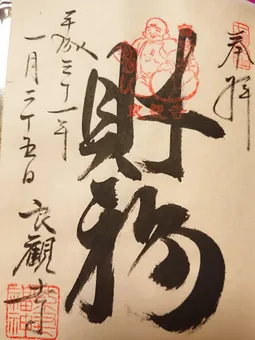 奉拝
財物
平成三十一年
一月二十五日
良観寺